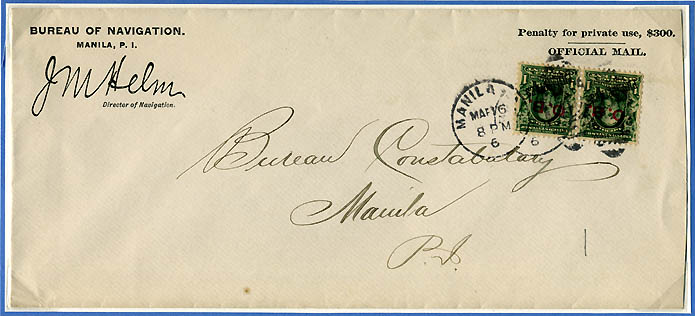 BUREAU OF NAVIGATION.
MANILA, P. I.
J M Helm
Director of Navigation.
Penalty for private use, $300.
OFFICIAL MAIL.
MANILA
MAR 16
8 PM
6
Bureau Constabulary
Manila
P.I.